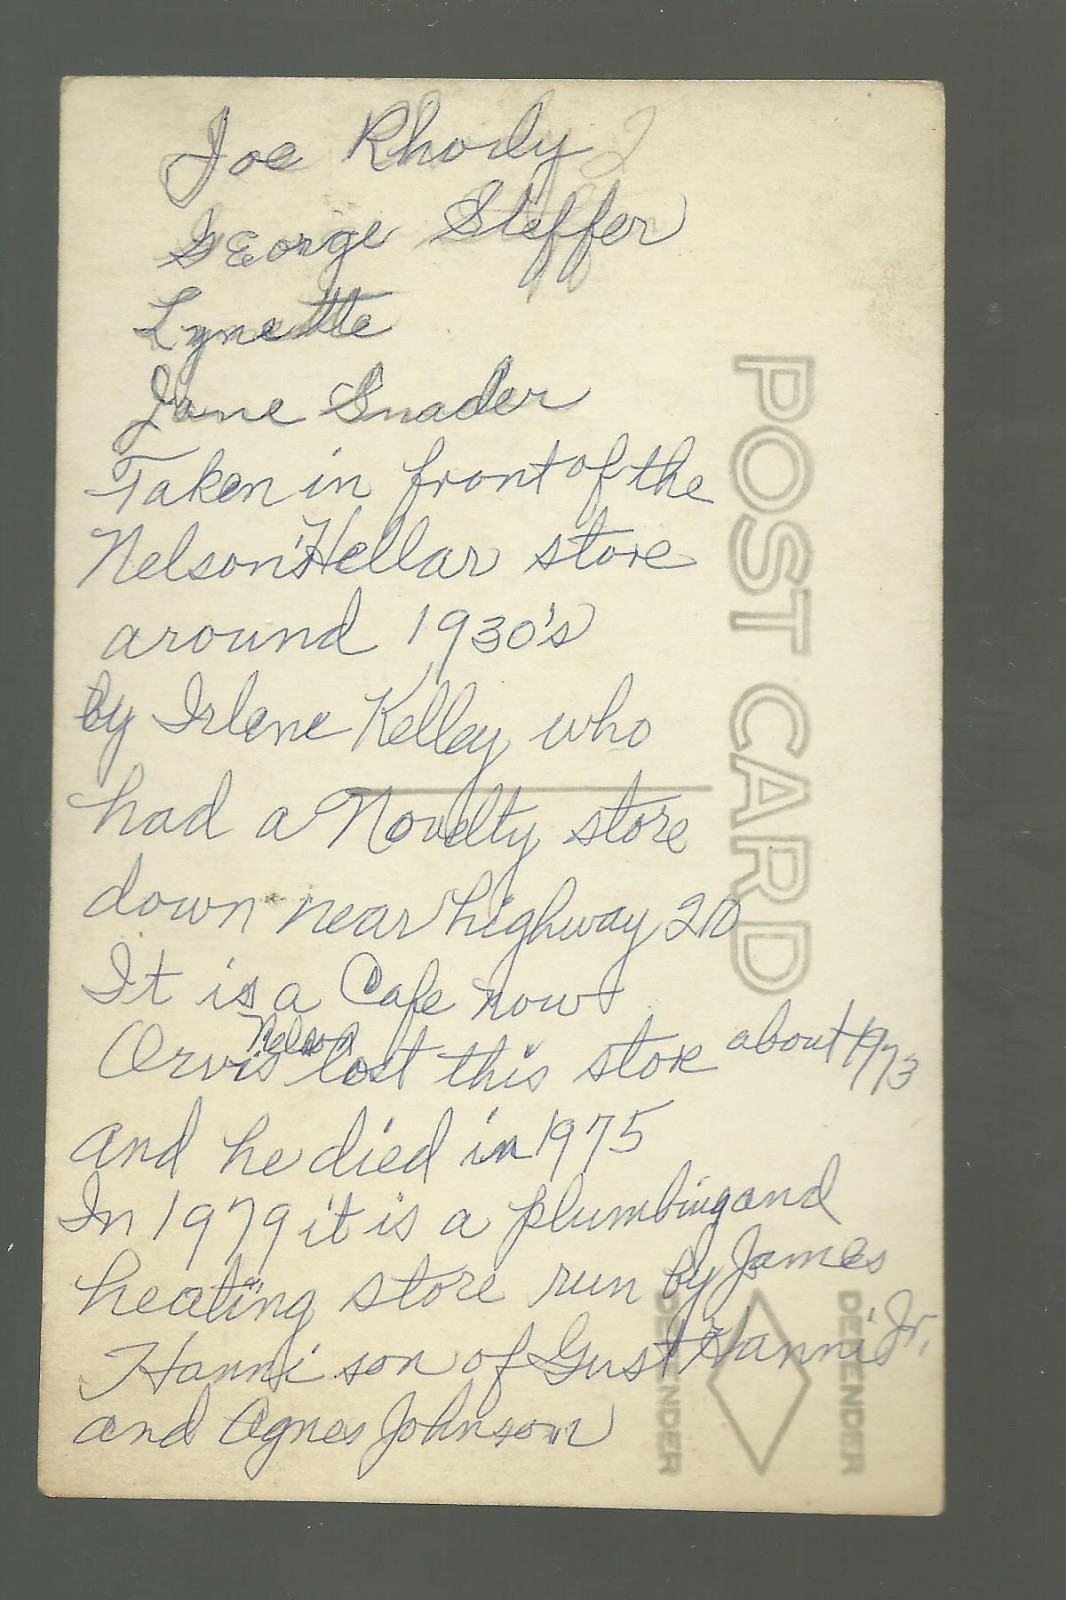 Joe Rhody
George Steffer
Lynette
Jane Snader
Taken in front of the
Nelson Hellar store
around 1930's
by Irlene Kelley who
had a Novelty store
down near highway 20
It is a Cafe now
Orvis Nelson lost this store about 1973
and he died in 1975
In 1979 it is a plumbing and
heating store run by James
Hanni son of Gust Hanni Jr.
and Agnes Johnson
POST CARD
DEFENDER
DEFENDER